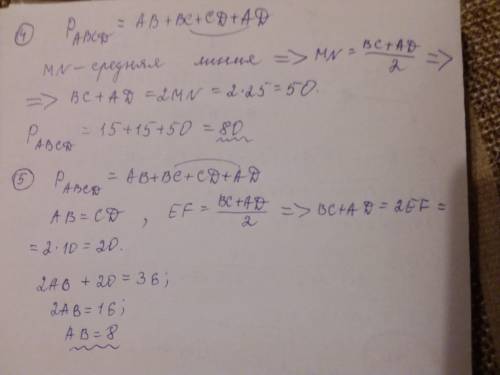 ④ P_ABCD = AB+BC+CD+AD
MN-средняя линия => MN = (BC+AD)/2 =>
=> BC+AD = 2MN = 2·25 = 50.
P_ABCD = 15+15+50 = 80
⑤ P_ABCD = AB+BC+CD+AD
AB=CD, EF = (BC+AD)/2 => BC+AD = 2EF =
= 2·10 = 20.
2AB + 20 = 36;
2AB = 16;
AB = 8